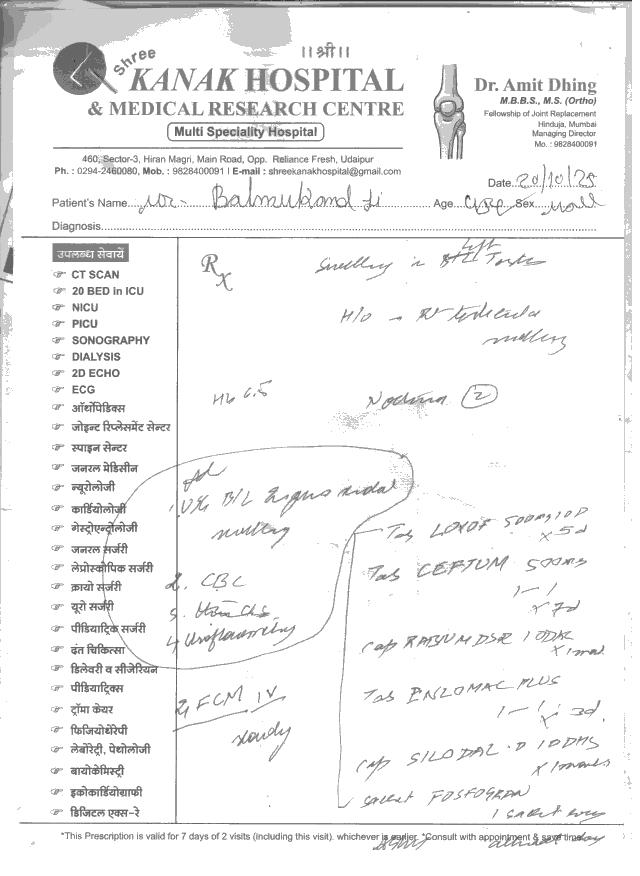 Shree
॥श्री॥
KANAK HOSPITAL
& MEDICAL RESEARCH CENTRE
Multi Speciality Hospital
Dr. Amit Dhing
M.B.B.S., M.S. (Ortho)
Fellowship of Joint Replacement
Hinduja, Mumbai
Managing Director
Mo. : 9828400091
460, Sector-3, Hiran Magri, Main Road, Opp. Reliance Fresh, Udaipur
Ph. : 0294-2460080, Mob. : 9828400091 | E-mail : shreekanakhospital@gmail.com
Date 20/10/25
Patient's Name Mr- Balmukand Ji Age Sex Male
Diagnosis
उपलब्ध सेवायें
Rx
Swelling in Left
CT SCAN
20 BED in ICU
NICU
H/O - Rt testicular
swelling
PICU
SONOGRAPHY
DIALYSIS
2D ECHO
ECG
Hb 6.5
2
ऑर्थोपिडिक्स
जोइन्ट रिप्लेसमेंट सेन्टर
स्पाइन सेन्टर
जनरल मेडिसीन
न्यूरोलोजी
कार्डियोलोर्जी
1. B/L
swelling
गेस्ट्रोएन्ट्रोलोजी
Tab LOXOF 500mg 10D
x 5d
जनरल सर्जरी
लेप्रोस्कोपिक सर्जरी
Tab CEFTUM 500mg
1-1
x 7d
क्रायो सर्जरी
2. CBC
यूरो सर्जरी
3.
पीडियाट्रिक सर्जरी
4. Uroflowmetry
Cap RABIUM DSR
दंत चिकित्सा
डिलेवरी व सीजेरियन
पीडियाट्रिक्स
Tab ENZOMAC PLUS
1-1 x 3d.
FCM IV
ट्रॉमा केयर
फिजियोथेरेपी
लेबोरेट्री, पेथोलोजी
Cap SILODAL-D
बायोकेमिस्ट्री
इकोकार्डियोग्राफी
Sachet FOSFOGRAN
डिजिटल एक्स-रे
1 sachet every
alternate day
*This Prescription is valid for 7 days of 2 visits (including this visit). whichever is earlier. *Consult with appointment & save time.